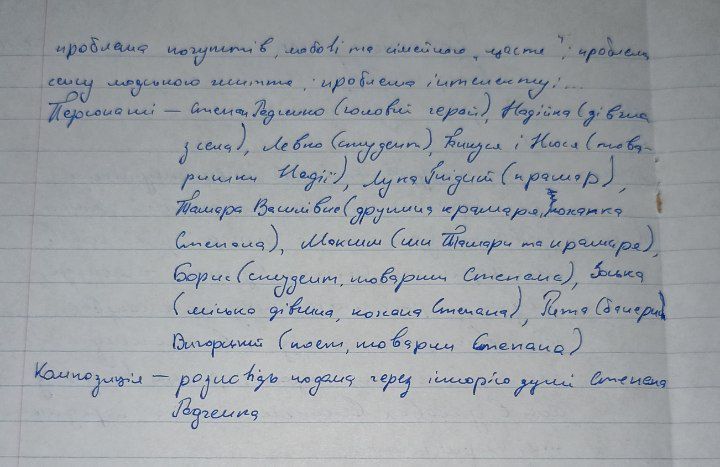 проблема почуттів, любові та сімейного "щастя"; проблема
сенсу людського життя; проблема інтелекту;...
Персонажі — Степан Радченко (головний герой), Надійка (дівчина
з села), Левко (студент), Ганнуся і Нюся (това-
ришки Надії), Лука Гнідий (крамар),
Тамара Василівна (дружина крамаря, коханка
Степана), Максим (син Тамари та крамаря),
Борис (студент, товариш Степана), Зоська
(міська дівчина, кохана Степана), Рита (балерина)
Вигорський (поет, товариш Степана)
Композиція — розповідь подана через історію душі Степана
Радченка